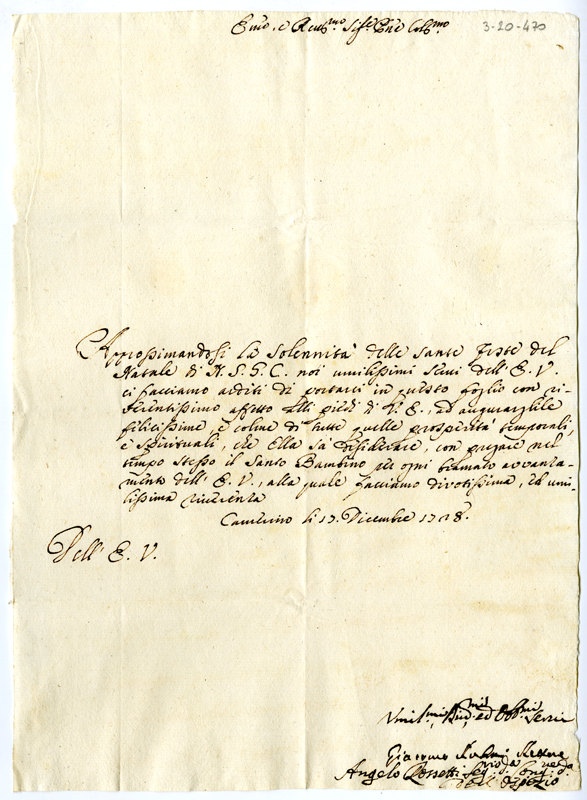 Emo, e Reũmo Sigre Pne Colmo
3-20-470
Approssimandosi la solennità delle sante feste del
Natale di N. S. G. C. noi umilissimi servi dell' E. V.
ci facciamo arditi di portarci in questo foglio con ri-
verentissimo affetto alli piedi di V. E., ed augurargliele
felicissime, e colme di tutte quelle prosperità temporali,
e spirituali, che Ella sà desiderare, con pregare nel
tempo stesso il Santo Bambino per ogni bramato avvanza-
mento dell' E. V., alla quale facciamo divotissima, ed umi-
lissima riverenza
Camerino li 17. Dicembre 1728.
Dell' E. V.
Umilmi ed Obbmi Servi
Giacomo
Angelo Rossetti Seg.